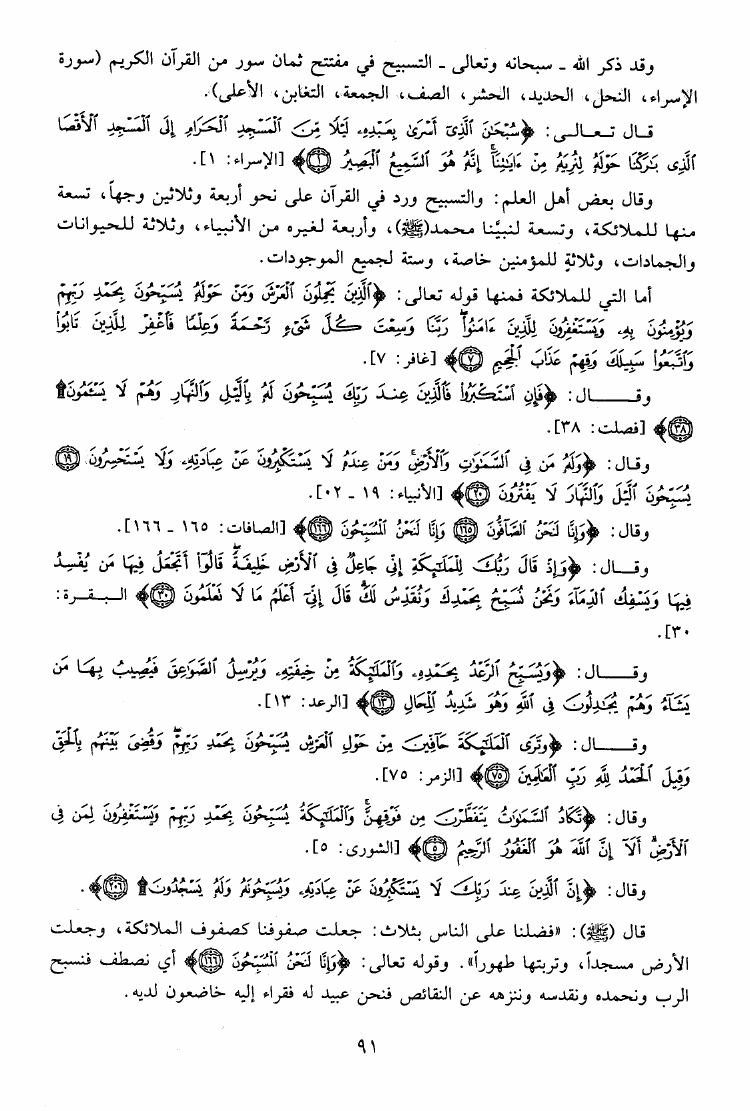 وقد ذكر الله ـ سبحانه وتعالى ـ التسبيح في مفتتح ثمان سور من القرآن الكريم (سورة
الإسراء، النحل، الحديد، الحشر، الصف، الجمعة، التغابن، الأعلى).
قال تعالى: ﴿سُبْحَٰنَ ٱلَّذِىٓ أَسْرَىٰ بِعَبْدِهِۦ لَيْلًا مِّنَ ٱلْمَسْجِدِ ٱلْحَرَامِ إِلَى ٱلْمَسْجِدِ ٱلْأَقْصَا
ٱلَّذِى بَٰرَكْنَا حَوْلَهُۥ لِنُرِيَهُۥ مِنْ ءَايَٰتِنَآ إِنَّهُۥ هُوَ ٱلسَّمِيعُ ٱلْبَصِيرُ ۝١﴾ [الإسراء: ١].
وقال بعض أهل العلم: والتسبيح ورد في القرآن على نحو أربعة وثلاثين وجهاً، تسعة
منها للملائكة، وتسعة لنبيَّنا محمد(ﷺ)، وأربعة لغيره من الأنبياء، وثلاثة للحيوانات
والجمادات، وثلاثةٍ للمؤمنين خاصة، وستة لجميع الموجودات.
أما التي للملائكة فمنها قوله تعالى: ﴿ٱلَّذِينَ يَحْمِلُونَ ٱلْعَرْشَ وَمَنْ حَوْلَهُۥ يُسَبِّحُونَ بِحَمْدِ رَبِّهِمْ
وَيُؤْمِنُونَ بِهِۦ وَيَسْتَغْفِرُونَ لِلَّذِينَ ءَامَنُوا۟ رَبَّنَا وَسِعْتَ كُلَّ شَىْءٍ رَّحْمَةً وَعِلْمًا فَٱغْفِرْ لِلَّذِينَ تَابُوا۟
وَٱتَّبَعُوا۟ سَبِيلَكَ وَقِهِمْ عَذَابَ ٱلْجَحِيمِ ۝٧﴾ [غافر: ٧].
وقال: ﴿فَإِنِ ٱسْتَكْبَرُوا۟ فَٱلَّذِينَ عِندَ رَبِّكَ يُسَبِّحُونَ لَهُۥ بِٱلَّيْلِ وَٱلنَّهَارِ وَهُمْ لَا يَسْـَٔمُونَ۩
۝٣٨﴾ [فصلت: ٣٨].
وقال: ﴿وَلَهُۥ مَن فِى ٱلسَّمَٰوَٰتِ وَٱلْأَرْضِ وَمَنْ عِندَهُۥ لَا يَسْتَكْبِرُونَ عَنْ عِبَادَتِهِۦ وَلَا يَسْتَحْسِرُونَ ۝١٩
يُسَبِّحُونَ ٱلَّيْلَ وَٱلنَّهَارَ لَا يَفْتُرُونَ ۝٢٠﴾ [الأنبياء: ١٩ ـ ٠٢].
وقال: ﴿وَإِنَّا لَنَحْنُ ٱلصَّآفُّونَ ۝١٦٥ وَإِنَّا لَنَحْنُ ٱلْمُسَبِّحُونَ ۝١٦٦﴾ [الصافات: ١٦٥ ـ ١٦٦].
وقال: ﴿وَإِذْ قَالَ رَبُّكَ لِلْمَلَٰٓئِكَةِ إِنِّى جَاعِلٌ فِى ٱلْأَرْضِ خَلِيفَةً قَالُوٓا۟ أَتَجْعَلُ فِيهَا مَن يُفْسِدُ
فِيهَا وَيَسْفِكُ ٱلدِّمَآءَ وَنَحْنُ نُسَبِّحُ بِحَمْدِكَ وَنُقَدِّسُ لَكَ قَالَ إِنِّىٓ أَعْلَمُ مَا لَا تَعْلَمُونَ ۝٣٠﴾ البقرة:
٣٠].
وقال: ﴿وَيُسَبِّحُ ٱلرَّعْدُ بِحَمْدِهِۦ وَٱلْمَلَٰٓئِكَةُ مِنْ خِيفَتِهِۦ وَيُرْسِلُ ٱلصَّوَٰعِقَ فَيُصِيبُ بِهَا مَن
يَشَآءُ وَهُمْ يُجَٰدِلُونَ فِى ٱللَّهِ وَهُوَ شَدِيدُ ٱلْمِحَالِ ۝١٣﴾ [الرعد: ١٣].
وقال: ﴿وَتَرَى ٱلْمَلَٰٓئِكَةَ حَآفِّينَ مِنْ حَوْلِ ٱلْعَرْشِ يُسَبِّحُونَ بِحَمْدِ رَبِّهِمْ وَقُضِىَ بَيْنَهُم بِٱلْحَقِّ
وَقِيلَ ٱلْحَمْدُ لِلَّهِ رَبِّ ٱلْعَٰلَمِينَ ۝٧٥﴾ [الزمر: ٧٥].
وقال: ﴿تَكَادُ ٱلسَّمَٰوَٰتُ يَتَفَطَّرْنَ مِن فَوْقِهِنَّ وَٱلْمَلَٰٓئِكَةُ يُسَبِّحُونَ بِحَمْدِ رَبِّهِمْ وَيَسْتَغْفِرُونَ لِمَن فِى
ٱلْأَرْضِ أَلَآ إِنَّ ٱللَّهَ هُوَ ٱلْغَفُورُ ٱلرَّحِيمُ ۝٥﴾ [الشورى: ٥].
وقال: ﴿إِنَّ ٱلَّذِينَ عِندَ رَبِّكَ لَا يَسْتَكْبِرُونَ عَنْ عِبَادَتِهِۦ وَيُسَبِّحُونَهُۥ وَلَهُۥ يَسْجُدُونَ۩ ۝٢٠٦﴾.
قال (ﷺ): «فضلنا على الناس بثلاث: جعلت صفوفنا كصفوف الملائكة، وجعلت
الأرض مسجداً، وتربتها طهوراً». وقوله تعالى: ﴿وَإِنَّا لَنَحْنُ ٱلْمُسَبِّحُونَ ۝١٦٦﴾ أي نصطف فنسبح
الرب ونحمده ونقدسه وننزهه عن النقائص فنحن عبيد له فقراء إليه خاضعون لديه.
٩١